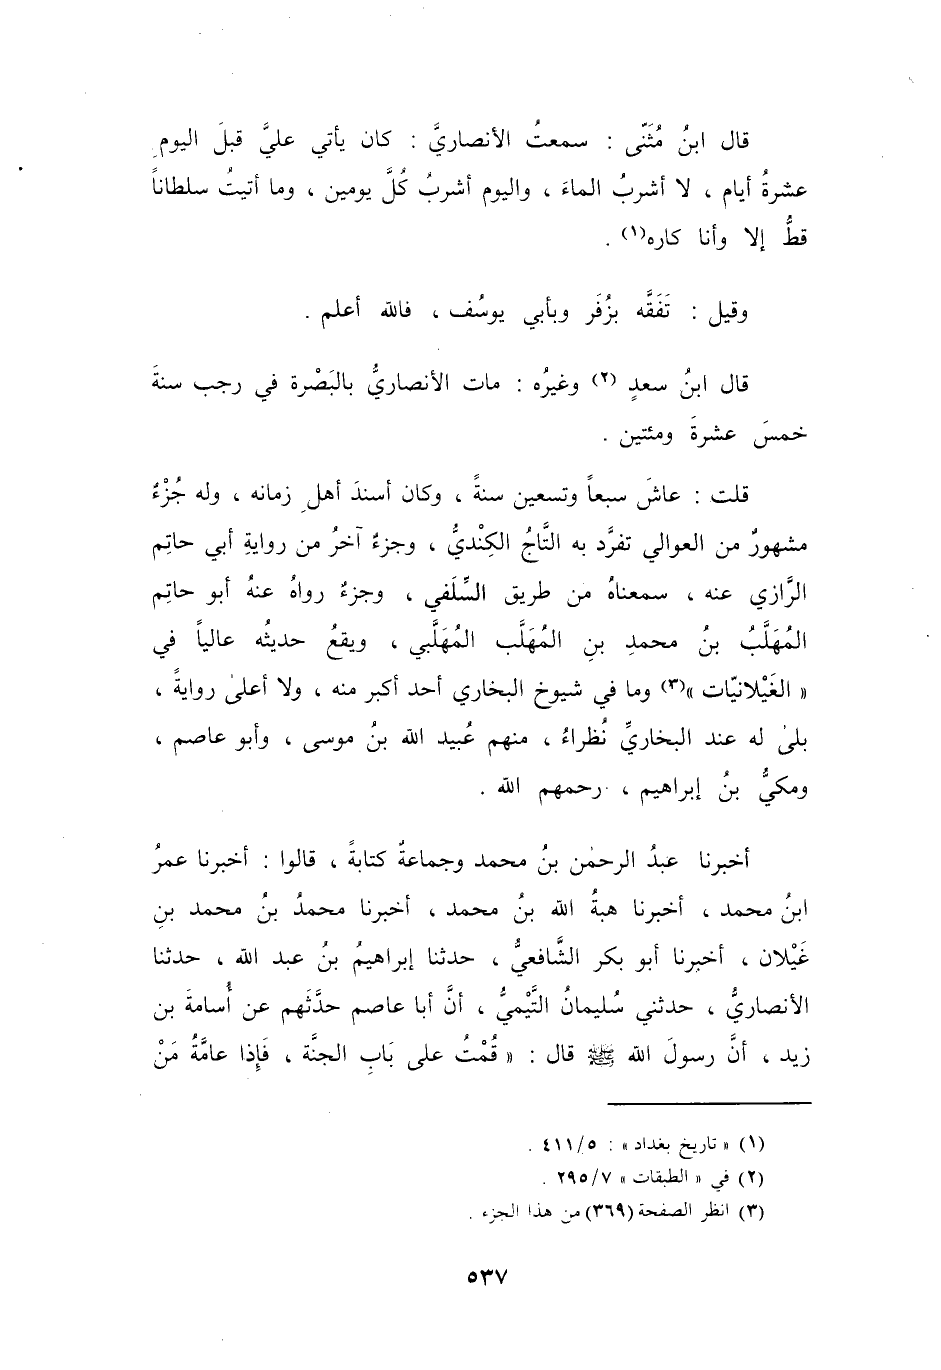 قال ابنُ مُثَنّى : سمعتُ الأنصاريَّ : كان يأتي عليَّ قبلَ اليومِ
عشرةُ أيام ، لا أشربُ الماءَ ، واليوم أشربُ كُلَّ يومين ، وما أتيتُ سلطاناً
قطُّ إلا وأنا كاره(١) .
وقيل : تَفَقَّه بزُفَر وبأبي يوسُف ، فالله أعلم .
قال ابنُ سعدٍ (٢) وغيرُه : مات الأنصاريُّ بالبَصْرة في رجب سنةَ
خمسَ عشرةَ ومئتين .
قلت : عاشَ سبعاً وتسعين سنةً ، وكان أسندَ أهلِ زمانه ، وله جُزْءٌ
مشهورٌ من العوالي تفرَّد به التَّاجُ الكِنْديُّ ، وجزءٌ آخرُ من روايةِ أبي حاتِم
الرَّازي عنه ، سمعناهُ من طريق السِّلَفي ، وجزءٌ رواهُ عنهُ أبو حاتِم
المُهَلَّبُ بنُ محمدِ بنِ المُهَلَّب المُهَلَّبي ، ويقعُ حديثُه عالياً في
« الغَيْلانيّات »(٣) وما في شيوخ البخاري أحد أكبر منه ، ولا أعلىٰ روايةً ،
بلىٰ له عند البخاريِّ نُظراءُ ، منهم عُبيد الله بنُ موسى ، وأبو عاصم ،
ومكيُّ بنُ إبراهيم ، رحمهم الله .
أخبرنا عبدُ الرحمٰن بنُ محمد وجماعةٌ كتابةً ، قالوا : أخبرنا عمرُ
ابنُ محمد ، أخبرنا هبةُ الله بنُ محمد ، أخبرنا محمدُ بنُ محمد بنِ
غَيْلان ، أخبرنا أبو بكر الشَّافعيُّ ، حدثنا إبراهيمُ بنُ عبد الله ، حدثنا
الأنصاريُّ ، حدثني سُليمانُ التَّيْميُّ ، أنَّ أبا عاصم حدَّثَهم عن أُسامةَ بن
زيد ، أنَّ رسولَ الله ﷺ قال : « قُمْتُ على بَابِ الجنَّة ، فَإِذا عامَّةُ مَنْ
(١) « تاريخ بغداد » : ٤١١/٥ .
(٢) في « الطبقات » ٢٩٥/٧ .
(٣) انظر الصفحة (٣٦٩) من هذا الجزء .
٥٣٧